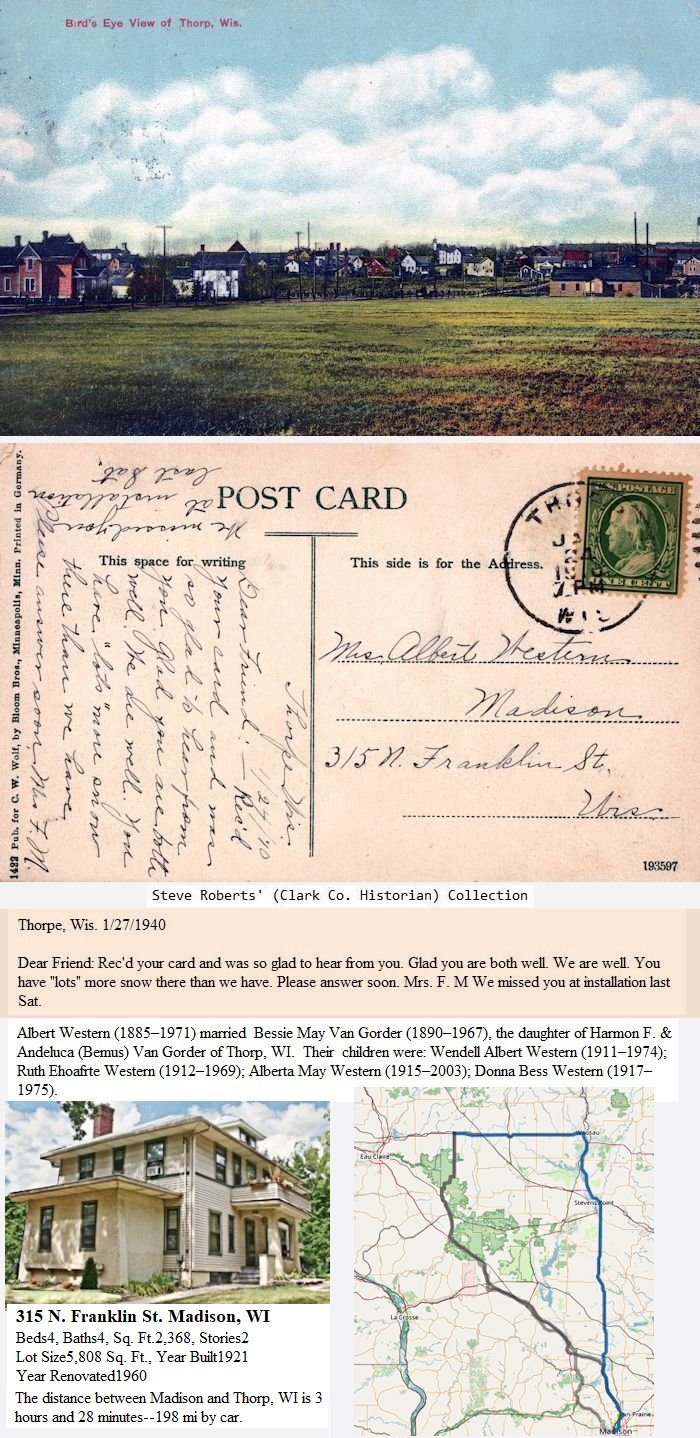 Bird's Eye View of Thorp, Wis.
1422 Pub. for C. W. Wolf, by Bloom Bros., Minneapolis, Minn. Printed in Germany.
POST CARD
This space for writing
This side is for the Address.
THOR
WIS
U.S. POSTAGE
ONE CENT
Thorpe Wis.
1/27/40
Dear Friend:— Rec'd
your card and was
so glad to hear from
you. Glad you are both
well. We are well. You
have "lots" more snow
there than we have.
Please answer soon. Mrs F. M.
We missed you
at installation
last Sat.
Mrs. Albert Western
Madison
315 N. Franklin St.
Wis.
193597
Steve Roberts' (Clark Co. Historian) Collection
Thorpe, Wis. 1/27/1940
Dear Friend: Rec'd your card and was so glad to hear from you. Glad you are both well. We are well. You
have "lots" more snow there than we have. Please answer soon. Mrs. F. M We missed you at installation last
Sat.
Albert Western (1885–1971) married Bessie May Van Gorder (1890–1967), the daughter of Harmon F. &
Andeluca (Bemus) Van Gorder of Thorp, WI. Their children were: Wendell Albert Western (1911–1974);
Ruth Ehoafrte Western (1912–1969); Alberta May Western (1915–2003); Donna Bess Western (1917–
1975).
315 N. Franklin St. Madison, WI
Beds4, Baths4, Sq. Ft.2,368, Stories2
Lot Size5,808 Sq. Ft., Year Built1921
Year Renovated1960
The distance between Madison and Thorp, WI is 3
hours and 28 minutes--198 mi by car.
Eau Claire
Wausau
Stevens Point
La Crosse
Sun Prairie
Madison